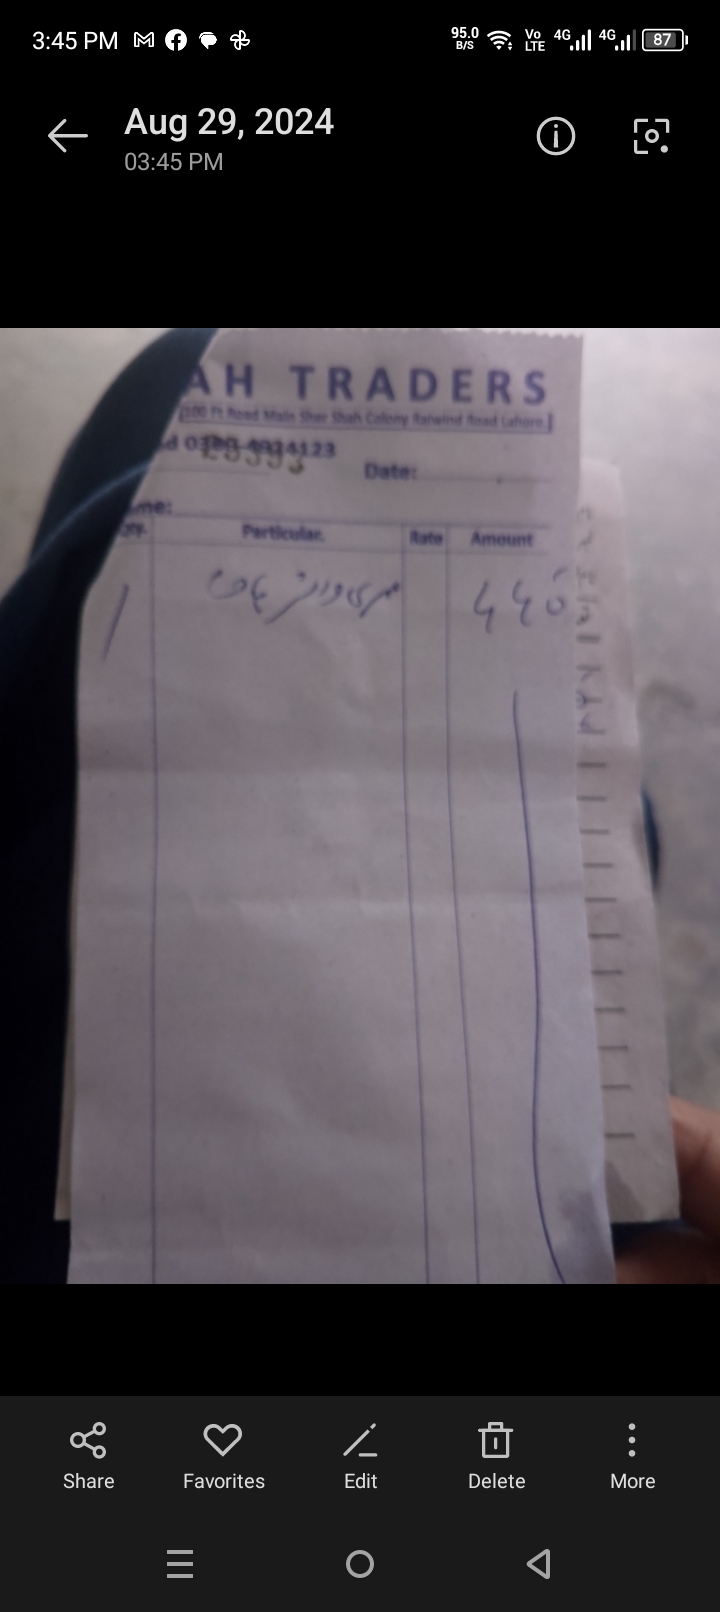 3:45 PM
95.0 B/S
Vo LTE
4G
4G
87
Aug 29, 2024
03:45 PM
AH TRADERS
[100 Ft Road Main Sher Shah Colony Raiwind Road Lahore.]
4123
Date:
me:
QTY. Particular. Rate Amount
1
Share
Favorites
Edit
Delete
More